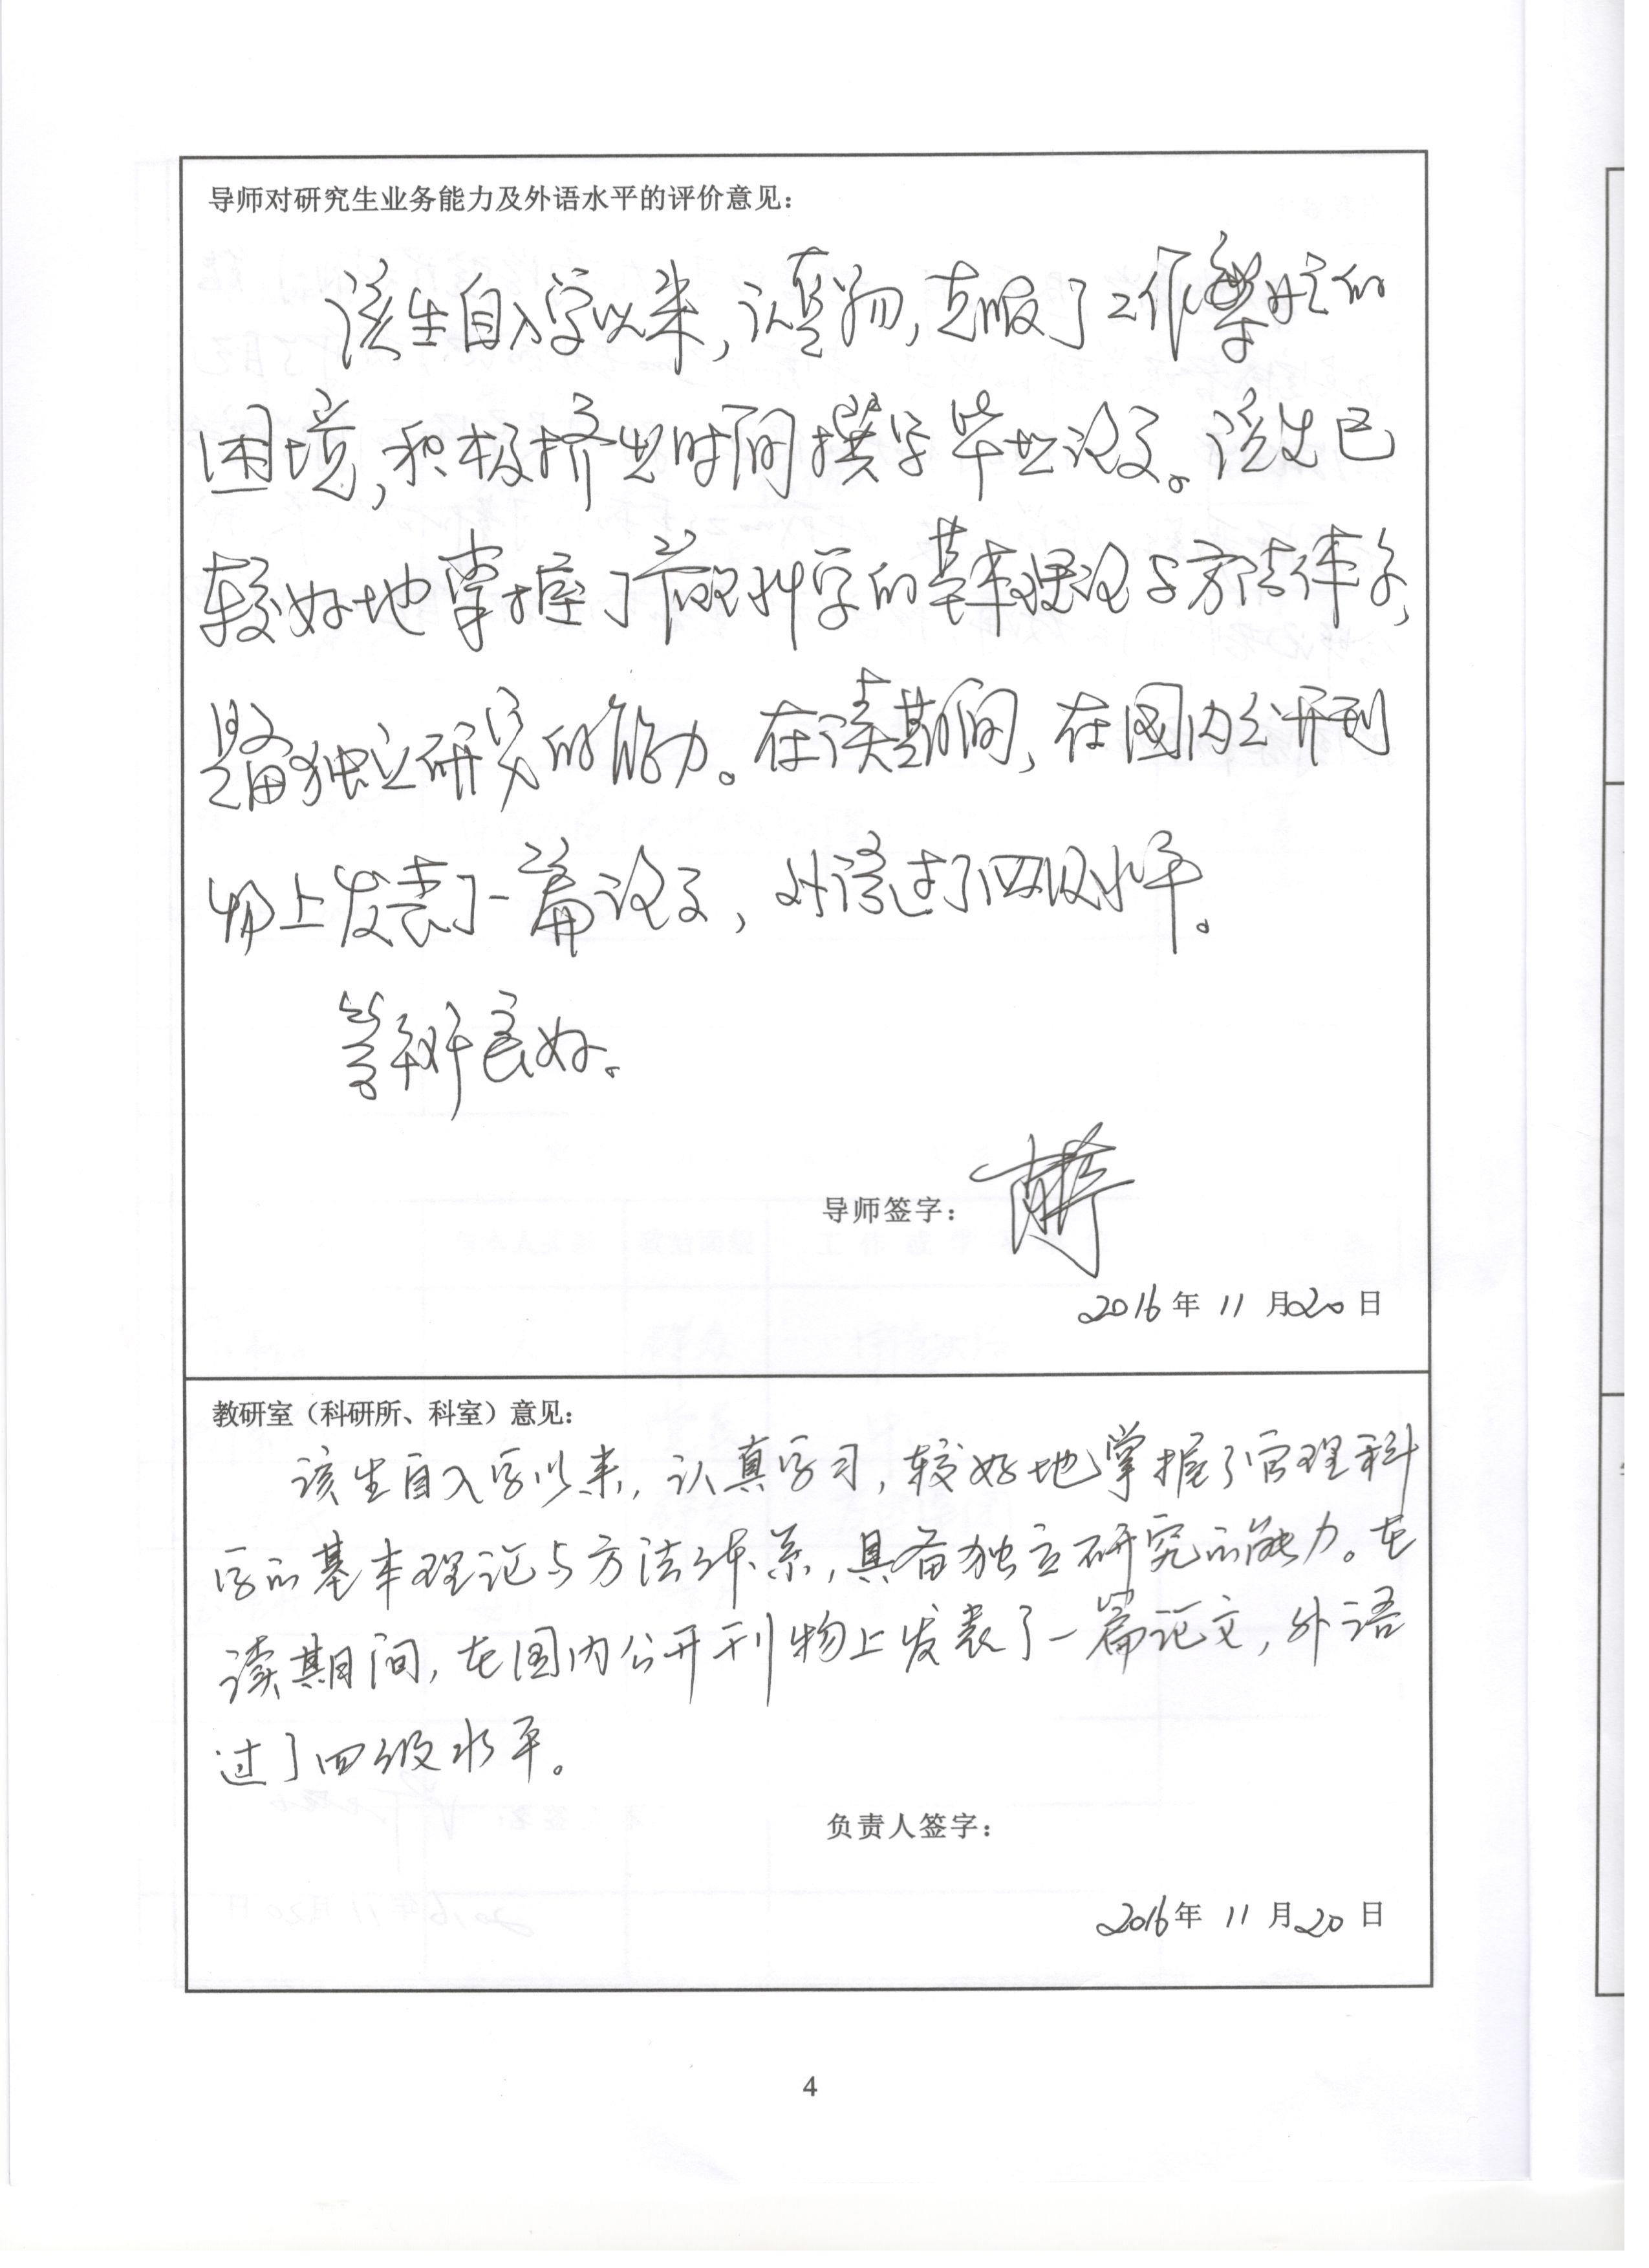 导师对研究生业务能力及外语水平的评价意见：
该生自入学以来，认真学习，克服了工作繁忙的
困境，积极挤出时间撰写毕业论文。该生已
较好地掌握了管理科学的基本理论与方法体系，
具备独立研究的能力。在读期间，在国内公开刊
物上发表了一篇论文，外语过了四级水平。
良好。
导师签字：
2016年 11 月20日
教研室（科研所、科室）意见：
该生自入学以来，认真学习，较好地掌握了管理科
学的基本理论与方法体系，具备独立研究的能力。在
读期间，在国内公开刊物上发表了一篇论文，外语
过了四级水平。
负责人签字：
2016年 11 月20日
4